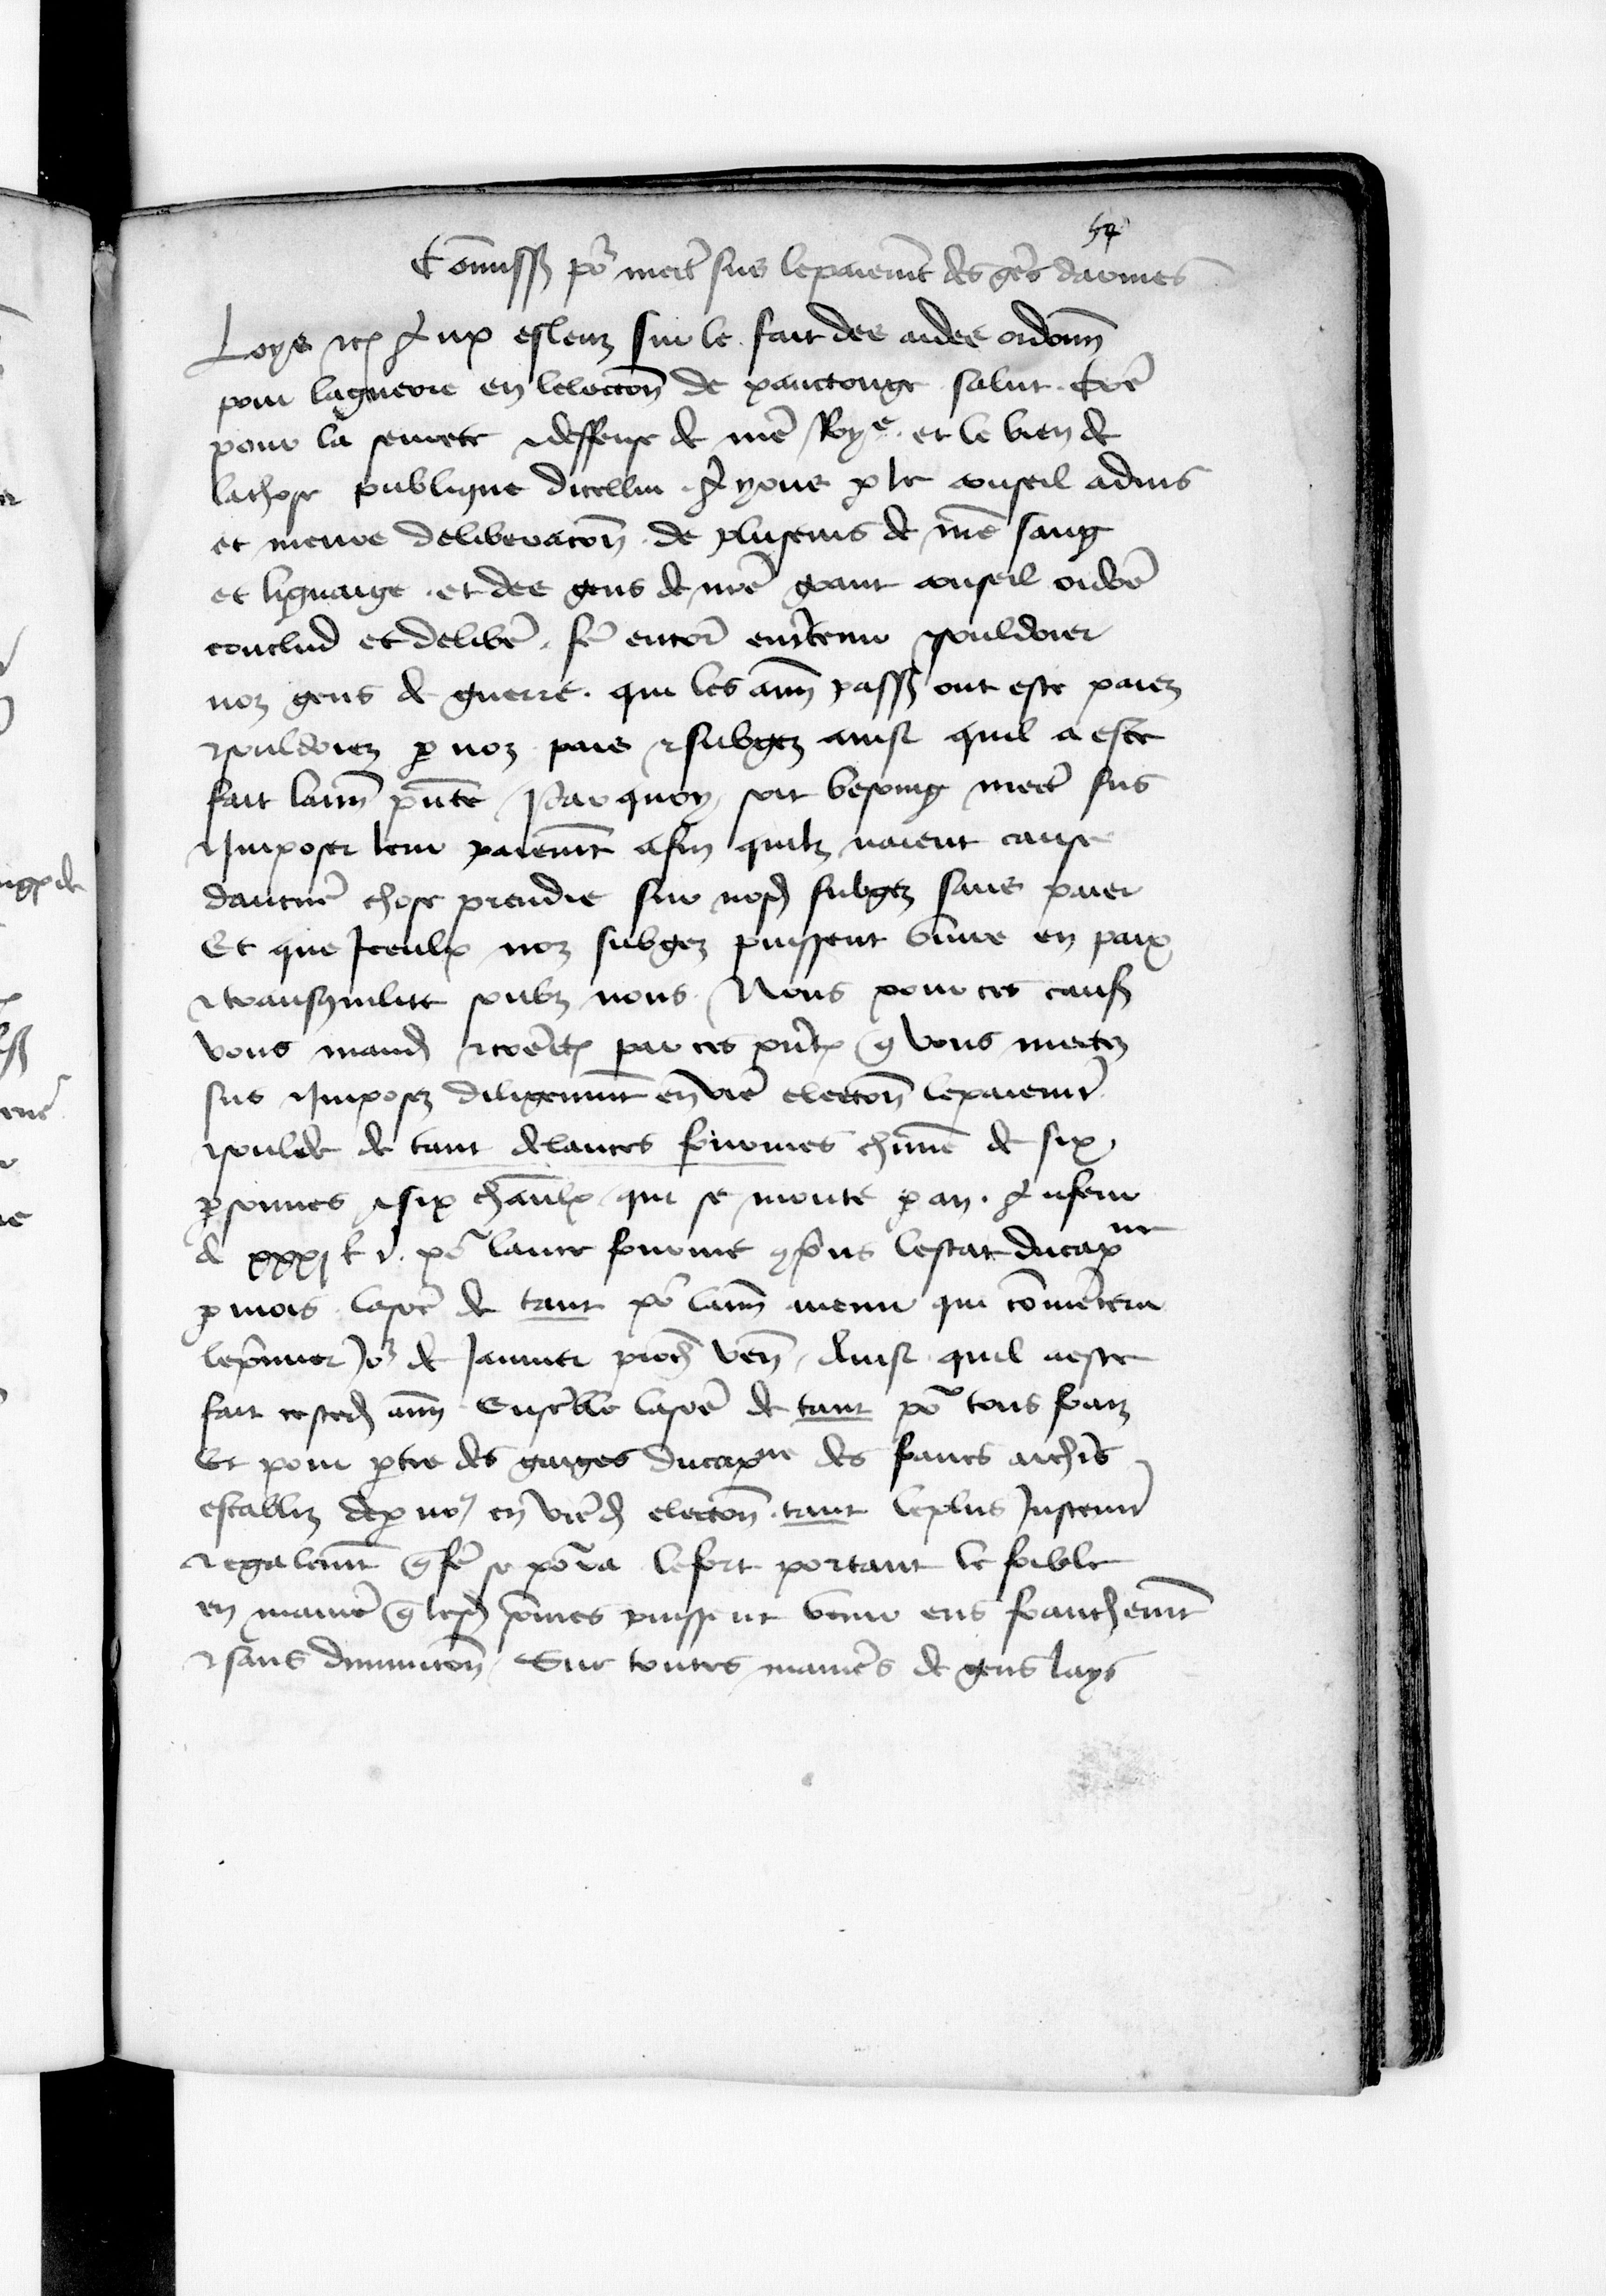 54
Commiss̄ po͛ mectr̄ sus le paiemn̄t des gēs darmes
Loys etc̄ A nx esleuz sur le fait des aides ordonn̄
pour la guerre en lelection̄ de xanctonge salut Com̄e
pour la seurete et deffense de nr̄e Roye et le bien de
la chose publique dicellui Ayons p le conseil aduis
et meure deliberacion̄ de pluseurs de nr̄e sang
et lignaige et des gens de nr̄e grant conseil ordōn̄e
conclud et deliber̄e fēr encor̄ entretenir et souldoier
noz gens de guerre qui les ann̄ pass̄ ont este paiez
et souldoiez p noz pais et subgez ainsi quil a este
fait lann̄ pn̄te Par quoy soit besoing mectr̄ sus
et Imposer leur paiemn̄t afin quilz naient cause
daucun̄e chose prendre sur nosd̄ subgez sans paier
Et que Iceulx noz subgez puissent viure en paix
et transquilite soubz nous Nous pour ces caus̄
vous mand̄ et com̄ectōs par ces pn̄tes q̄ vous mectez
sus et Imposez diligemmn̄t en vr̄e election̄ le paiemn̄t
et soulde de tant de lances fournies chūne de six
psonnes et six cheuaulx qui se monte p an A
de xxxj l t. po͛ lance fournie comprins lestat du cappne
p mois la som̄e de tant po͛ lann̄ auenir qui com̄encera
le pmier Jo͛ de Januier proch̄ ven̄ Ainsi quil a este
fait ceste d̄ ann̄ Ensemble la som̄e de tant po͛ tous fraiz
Et pour ptie des gaiges du cappne des francs archiers
establiz de p no9 en vr̄e d̄ election̄ tant le plus Justemn̄t
et egalemn̄t q̄ fēr se porra le fort portant le foible
en manier̄e q̄ lesd̄ som̄es puissent venir ens franchemn̄t
et sans diminucion̄ Sur toutes manier̄es de gens lays